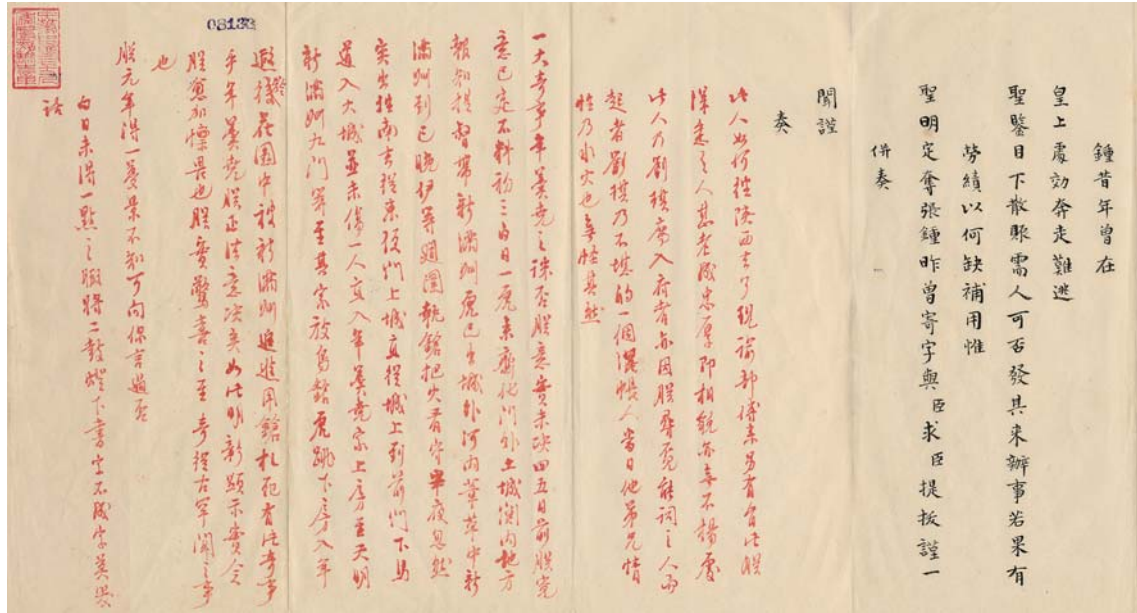 鍾昔年曾在
皇上處効奔走難逃
聖鑒目下散賑需人可否發其來辦事若果有
勞績以何缺補用惟
聖明定奪張鍾昨曾寄字與臣求臣提拔謹一
併奏
聞謹
奏
此人如何從陝西去了現諭部傳來另有旨此朕
深悉之人甚老成忠厚即相貌亦無不揚處
此人乃劉棋薦入府者亦因朕尋覓能詞之人而
起者劉棋乃不堪的一個混帳人當日他弟兄情
性乃水火也無怪其然
一大奇事年羹堯之誅否朕意實未決四五日前朕寬
意已定不料初三白日一虎來齊化門外土城關內地方
報知提督帶新滿洲虎已出城外河內葦草中新
滿洲到已晚伊等週圍執鎗把火看守半夜忽然
突出往南去從東便門上城直從城上到前門下馬
道入大城並未傷一人直入年羹堯家上房至天明
新滿洲九門等至其家放鳥鎗虎跳下房入年
遐齡花園中被新滿洲追進用鎗札死有此奇事
乎年羹堯朕正法意決矣如此明彰顯示實令
朕愈加懍畏也朕實驚喜之至奇從古罕聞之事
也
朕元年得一夢景不知可向你言過否
白日未得一點之暇將二鼓燈下書字不成字莫笑
話
08133